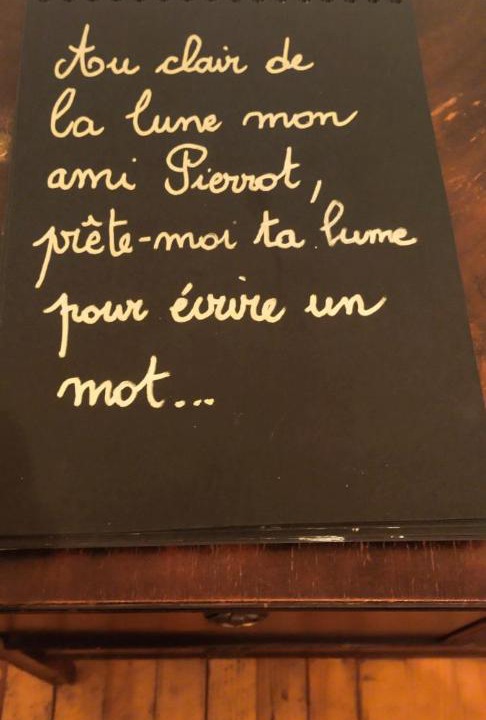 Au clair de
la lune mon
ami Pierrot,
prête-moi ta lume
pour écrire un
mot...